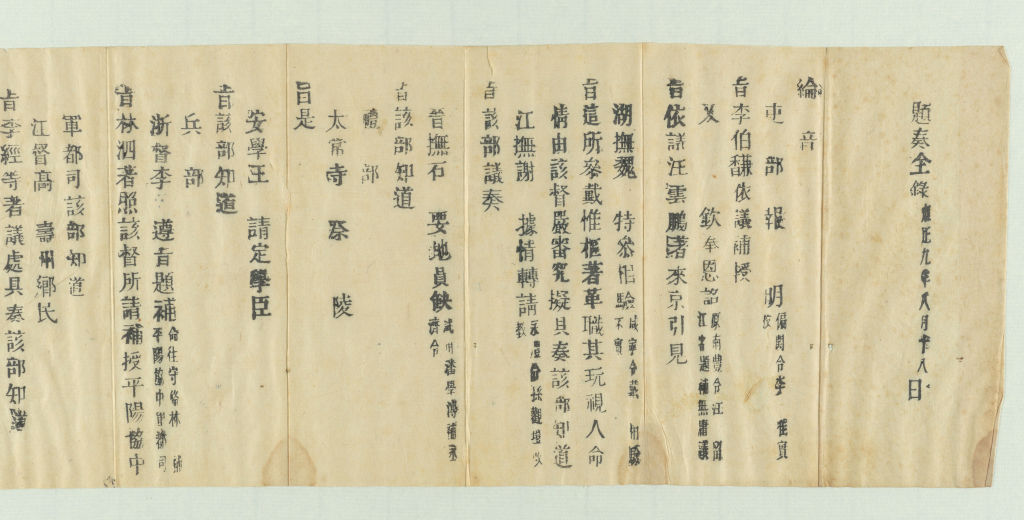 題奏全錄 雍正九年八月十八日
綸音
吏部 報明 偏関令李
旨李伯馦依議補授
又 欽奉恩詔 原南豐令汪 江省題補無庸議
旨依議汪雲鵬著來京引見
湖撫魏 特參相驗不實 咸寧令戴
旨這所參戴惟樞著革職其玩視人命
情由該督嚴審究擬具奏該部知道
江撫謝 據情轉請
旨該部議奏
晉撫石 要地員缺
旨該部知道
禮部
太常寺 祭陵
旨是
安學王 請定學臣
旨該部知道
兵部
浙督李 遵旨題補 平陽協中軍
旨林泗著照該督所請補授平陽協中
軍都司該部知道
江督高 壽州鄉民
旨李經等著議處具奏該部知道